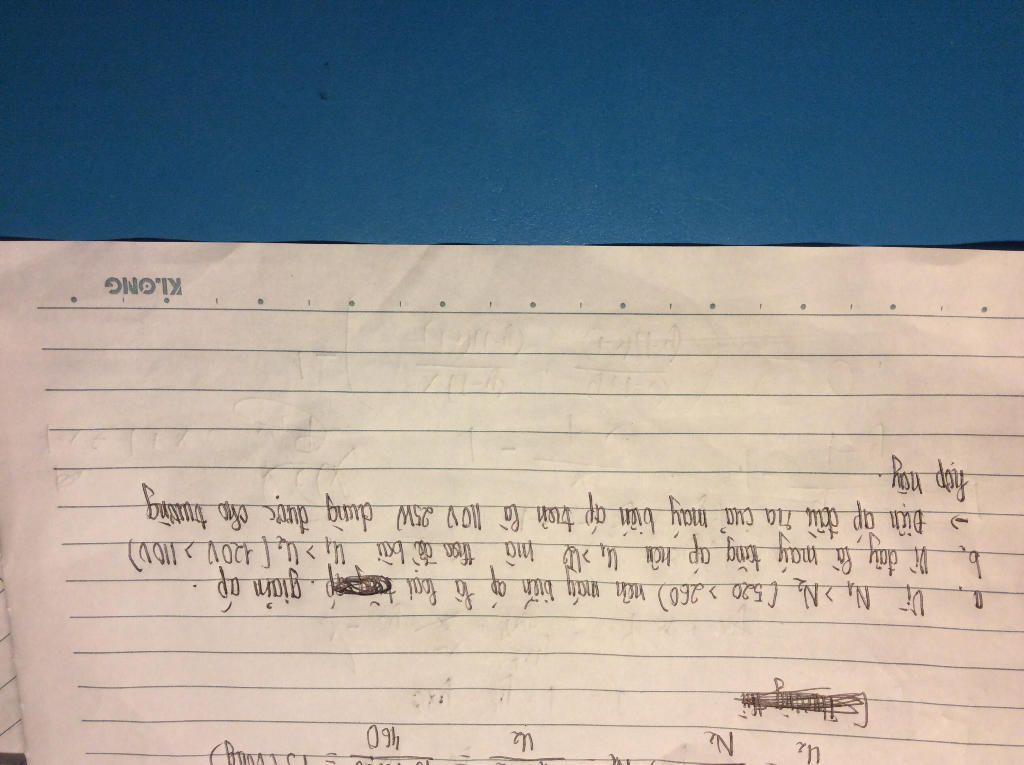 a. Vì N₁ > N₂ (520 > 260) nên máy biến áp là loại giảm áp.
b, Vì đây là máy tăng áp nên U₁ > U₂ mà theo đề bài U₁ > U₂ (120V > 110V)
→ Điện áp đầu ra của máy biến áp trên là 110V 25W dùng được cho trường
hợp này.
KLONG